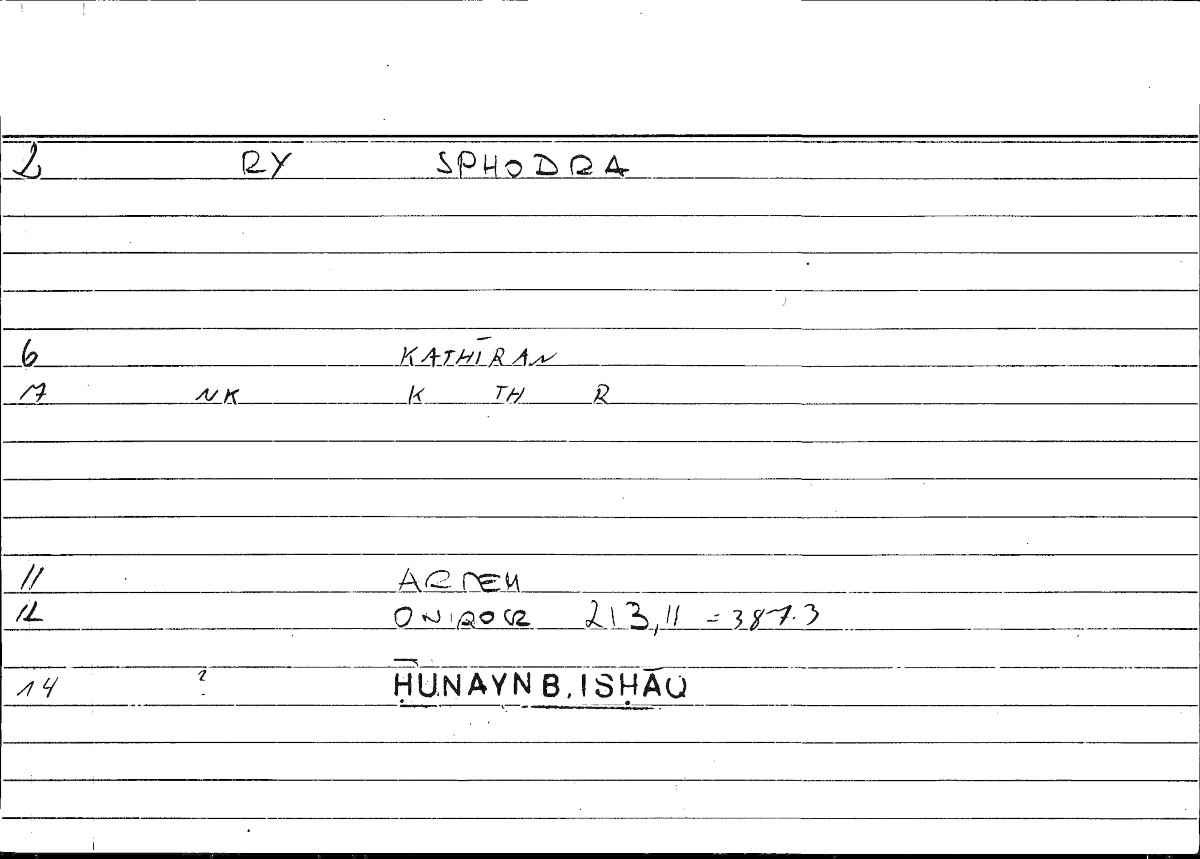 2 RY SPHODRA
6 KATHĪRAN
17 NK K TH R
11 ARTEM
12 ONIROCR 213,11 = 387.3
14 ? ḤUNAYN B. ISḤĀQ